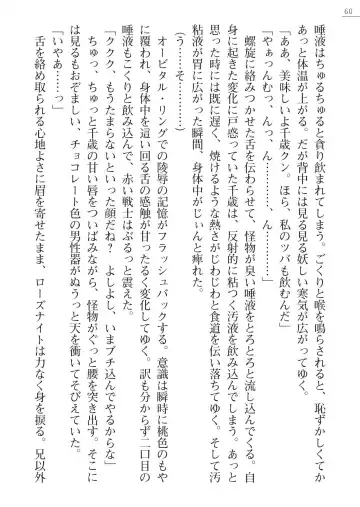 60
唾液はちゅるちゅると貪り飲まれてしまう。ごくりと喉を鳴らされると、恥ずかしくてか
あっと体温が上がる。だが背中には見る見る妖しい寒気が広がってゆく。
「ああ、美味しいよ千歳クン。ほら、私のツバも飲むんだ」
「やぁっんむっ、んっ、ん…………んっ、んっ」
螺旋に絡みつかせた舌を伝わらせて、怪物が臭い唾液をとろとろと流し込んでくる。自
身に起きた変化に戸惑っていた千歳は、反射的に粘つく汚液を飲み込んでしまう。あっと
思った時には既に遅く、焼けるような熱さがじわじわと食道を伝い落ちてゆく。そして汚
粘液が胃に広がった瞬間、身体中がじぃんと痺れた。
(う……そ…………)
オービタル・リングでの陵辱の記憶がフラッシュバックする。意識は瞬時に桃色のもや
に覆われ、身体中を這い回る舌の感触が甘ったるく変化してゆく。訳も分からず二口目の
唾液もこくりと飲み込んで、赤い戦士はぶるっと震えた。
「ククク、もうたまらないといった顔だね？　よしよし、いまブチ込んでやるからな」
ちゅっ、ちゅっと千歳の甘い唇をついばみながら、怪物がぐっと腰を突き出す。そこに
は見るもおぞましい、チョコレート色の男性器がぬうっと天を衝いてそびえていた。
「いやあ……っ」
舌を絡め取られる心地よさに眉を寄せたまま、ローズナイトは力なく身を捩る。兄以外